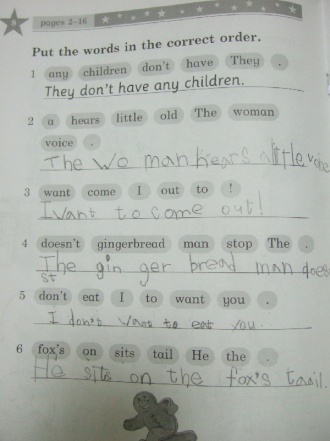 pages 2-16
Put the words in the correct order.
1 any children don't have They .
They don't have any children.
2 a hears little old The woman
voice .
The wo man hears a little voice
3 want come I out to !
I want to come out!
4 doesn't gingerbread man stop The .
The gin ger bread man does
st
5 don't eat I to want you .
I don't want to eat you.
6 fox's on sits tail He the .
He sits on the fox's tail.